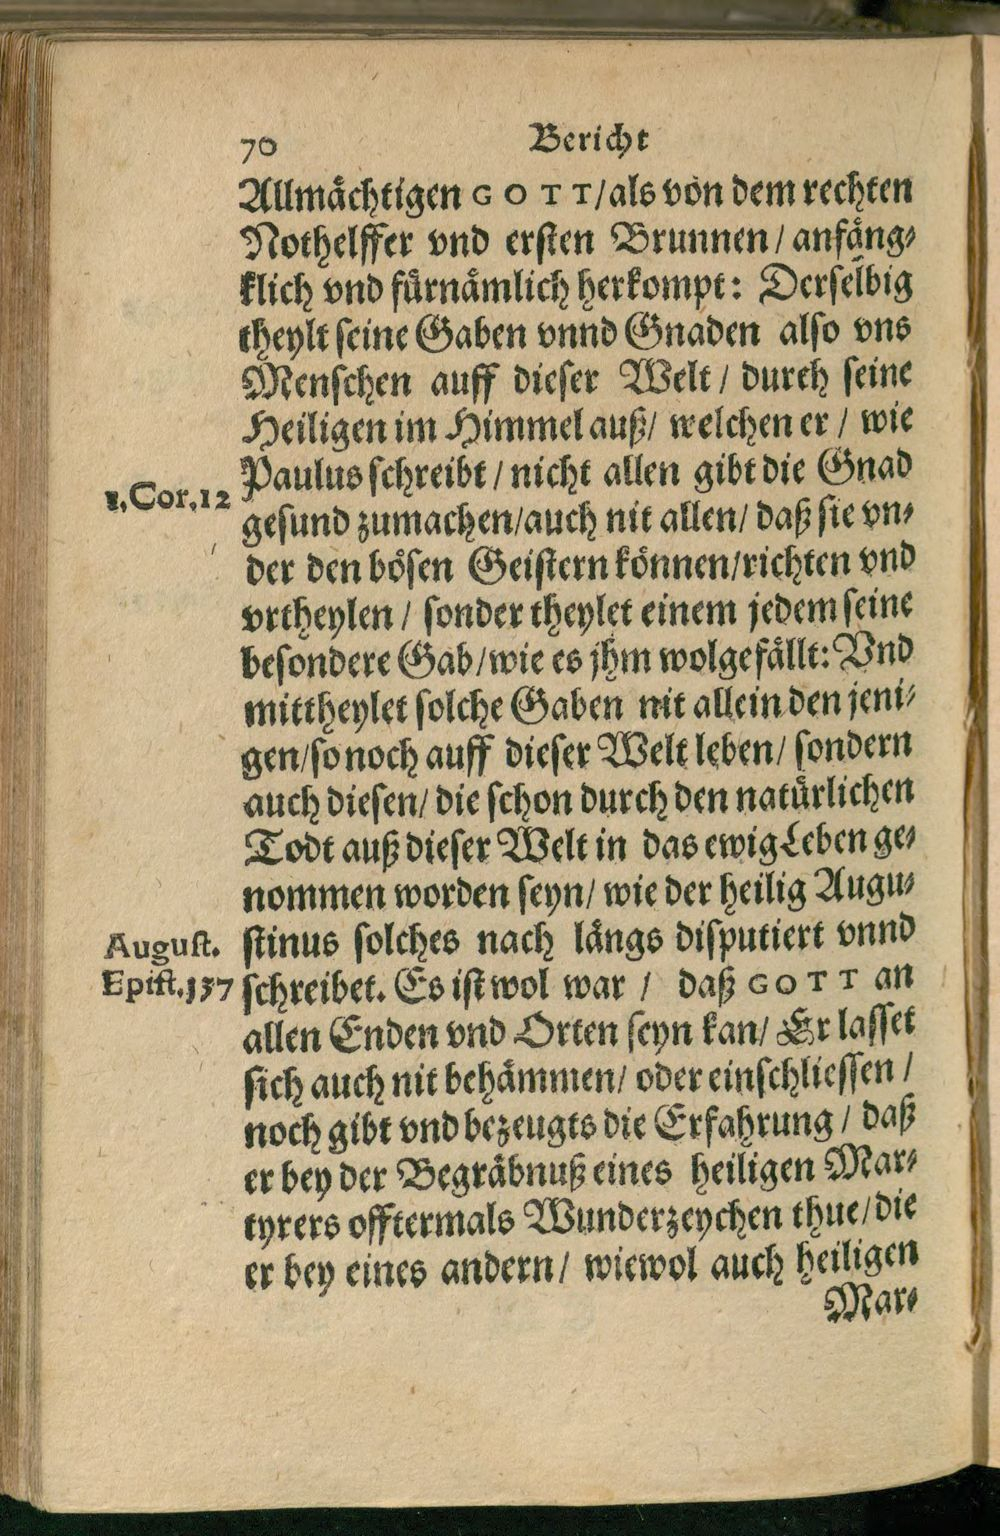 70 Bericht
Allmächtigen GOTT/als von dem rechten
Nothelffer vnd ersten Brunnen/ anfäng-
klich vnd fürnämlich herkompt: Derselbig
theylt seine Gaben vnnd Gnaden also vns
Menschen auff dieser Welt/ durch seine
Heiligen im Himmel auß/ welchen er/ wie
Paulus schreibt/ nicht allen gibt die Gnad
1,Cor,12
gesund zumachen/auch nit allen/ daß sie vn-
der den bösen Geistern können/richten vnd
vrtheylen/ sonder theylet einem jedem seine
besondere Gab/wie es jhm wolgefällt: Vnd
mittheylet solche Gaben nit allein den jeni-
gen/so noch auff dieser Welt leben/ sondern
auch diesen/ die schon durch den natürlichen
Todt auß dieser Welt in das ewig Leben ge-
nommen worden seyn/ wie der heilig Augu-
August. stinus solches nach längs disputiert vnnd
Epist.137 schreibet. Es ist wol war/ daß GOTT an
allen Enden vnd Orten seyn kan/ Er lasset
sich auch nit behämmen/ oder einschliessen/
noch gibt vnd bezeugts die Erfahrung/ daß
er bey der Begräbnuß eines heiligen Mar-
tyrers offtermals Wunderzeychen thue/die
er bey eines andern/ wiewol auch heiligen
Mar-